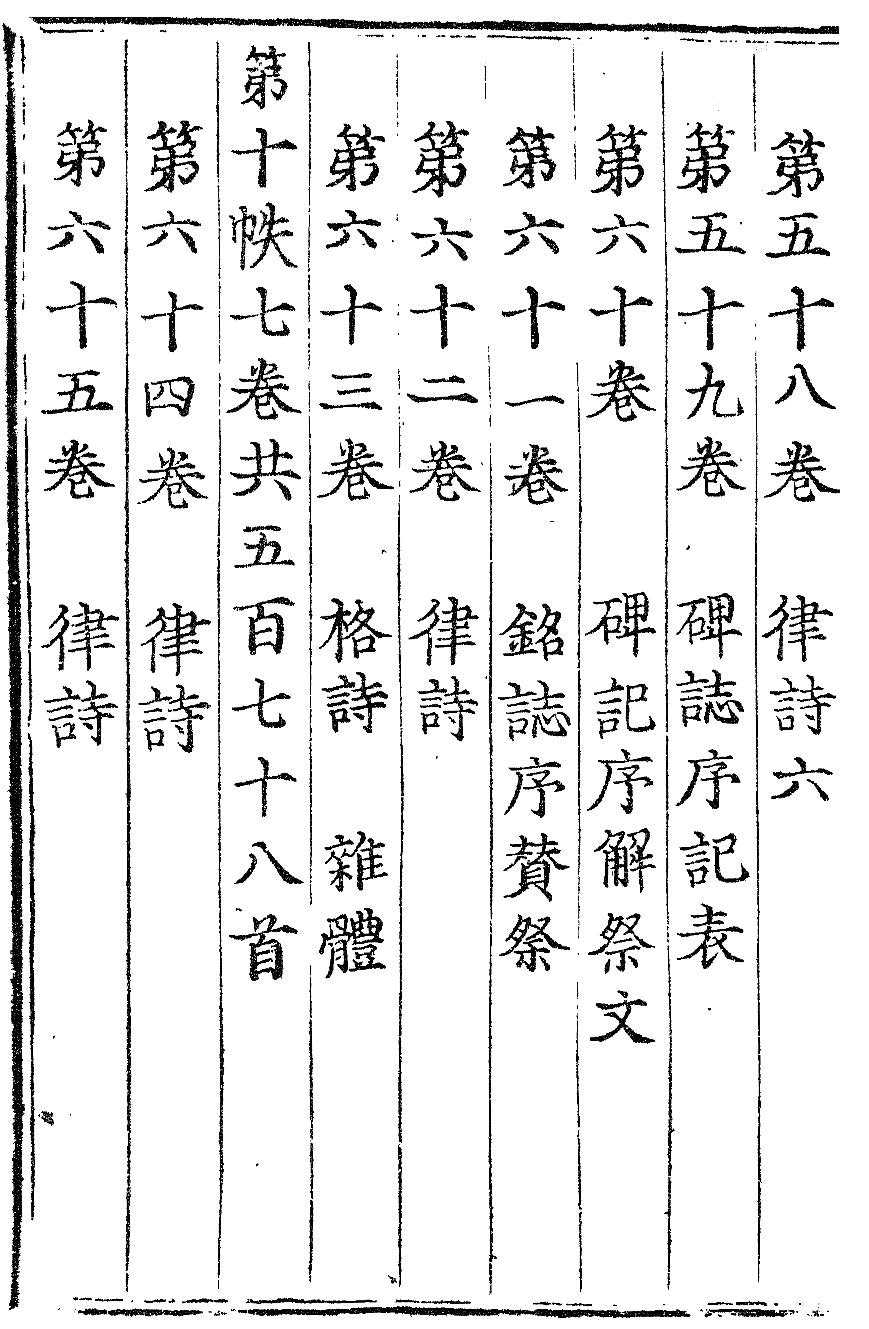 第五十八卷　律詩六
第五十九卷　碑誌序記表
第六十卷　碑記序解祭文
第六十一卷　銘誌序贊祭
第六十二卷　律詩
第六十三卷　格詩　雜體
第十帙七卷共五百七十八首
第六十四卷　律詩
第六十五卷　律詩